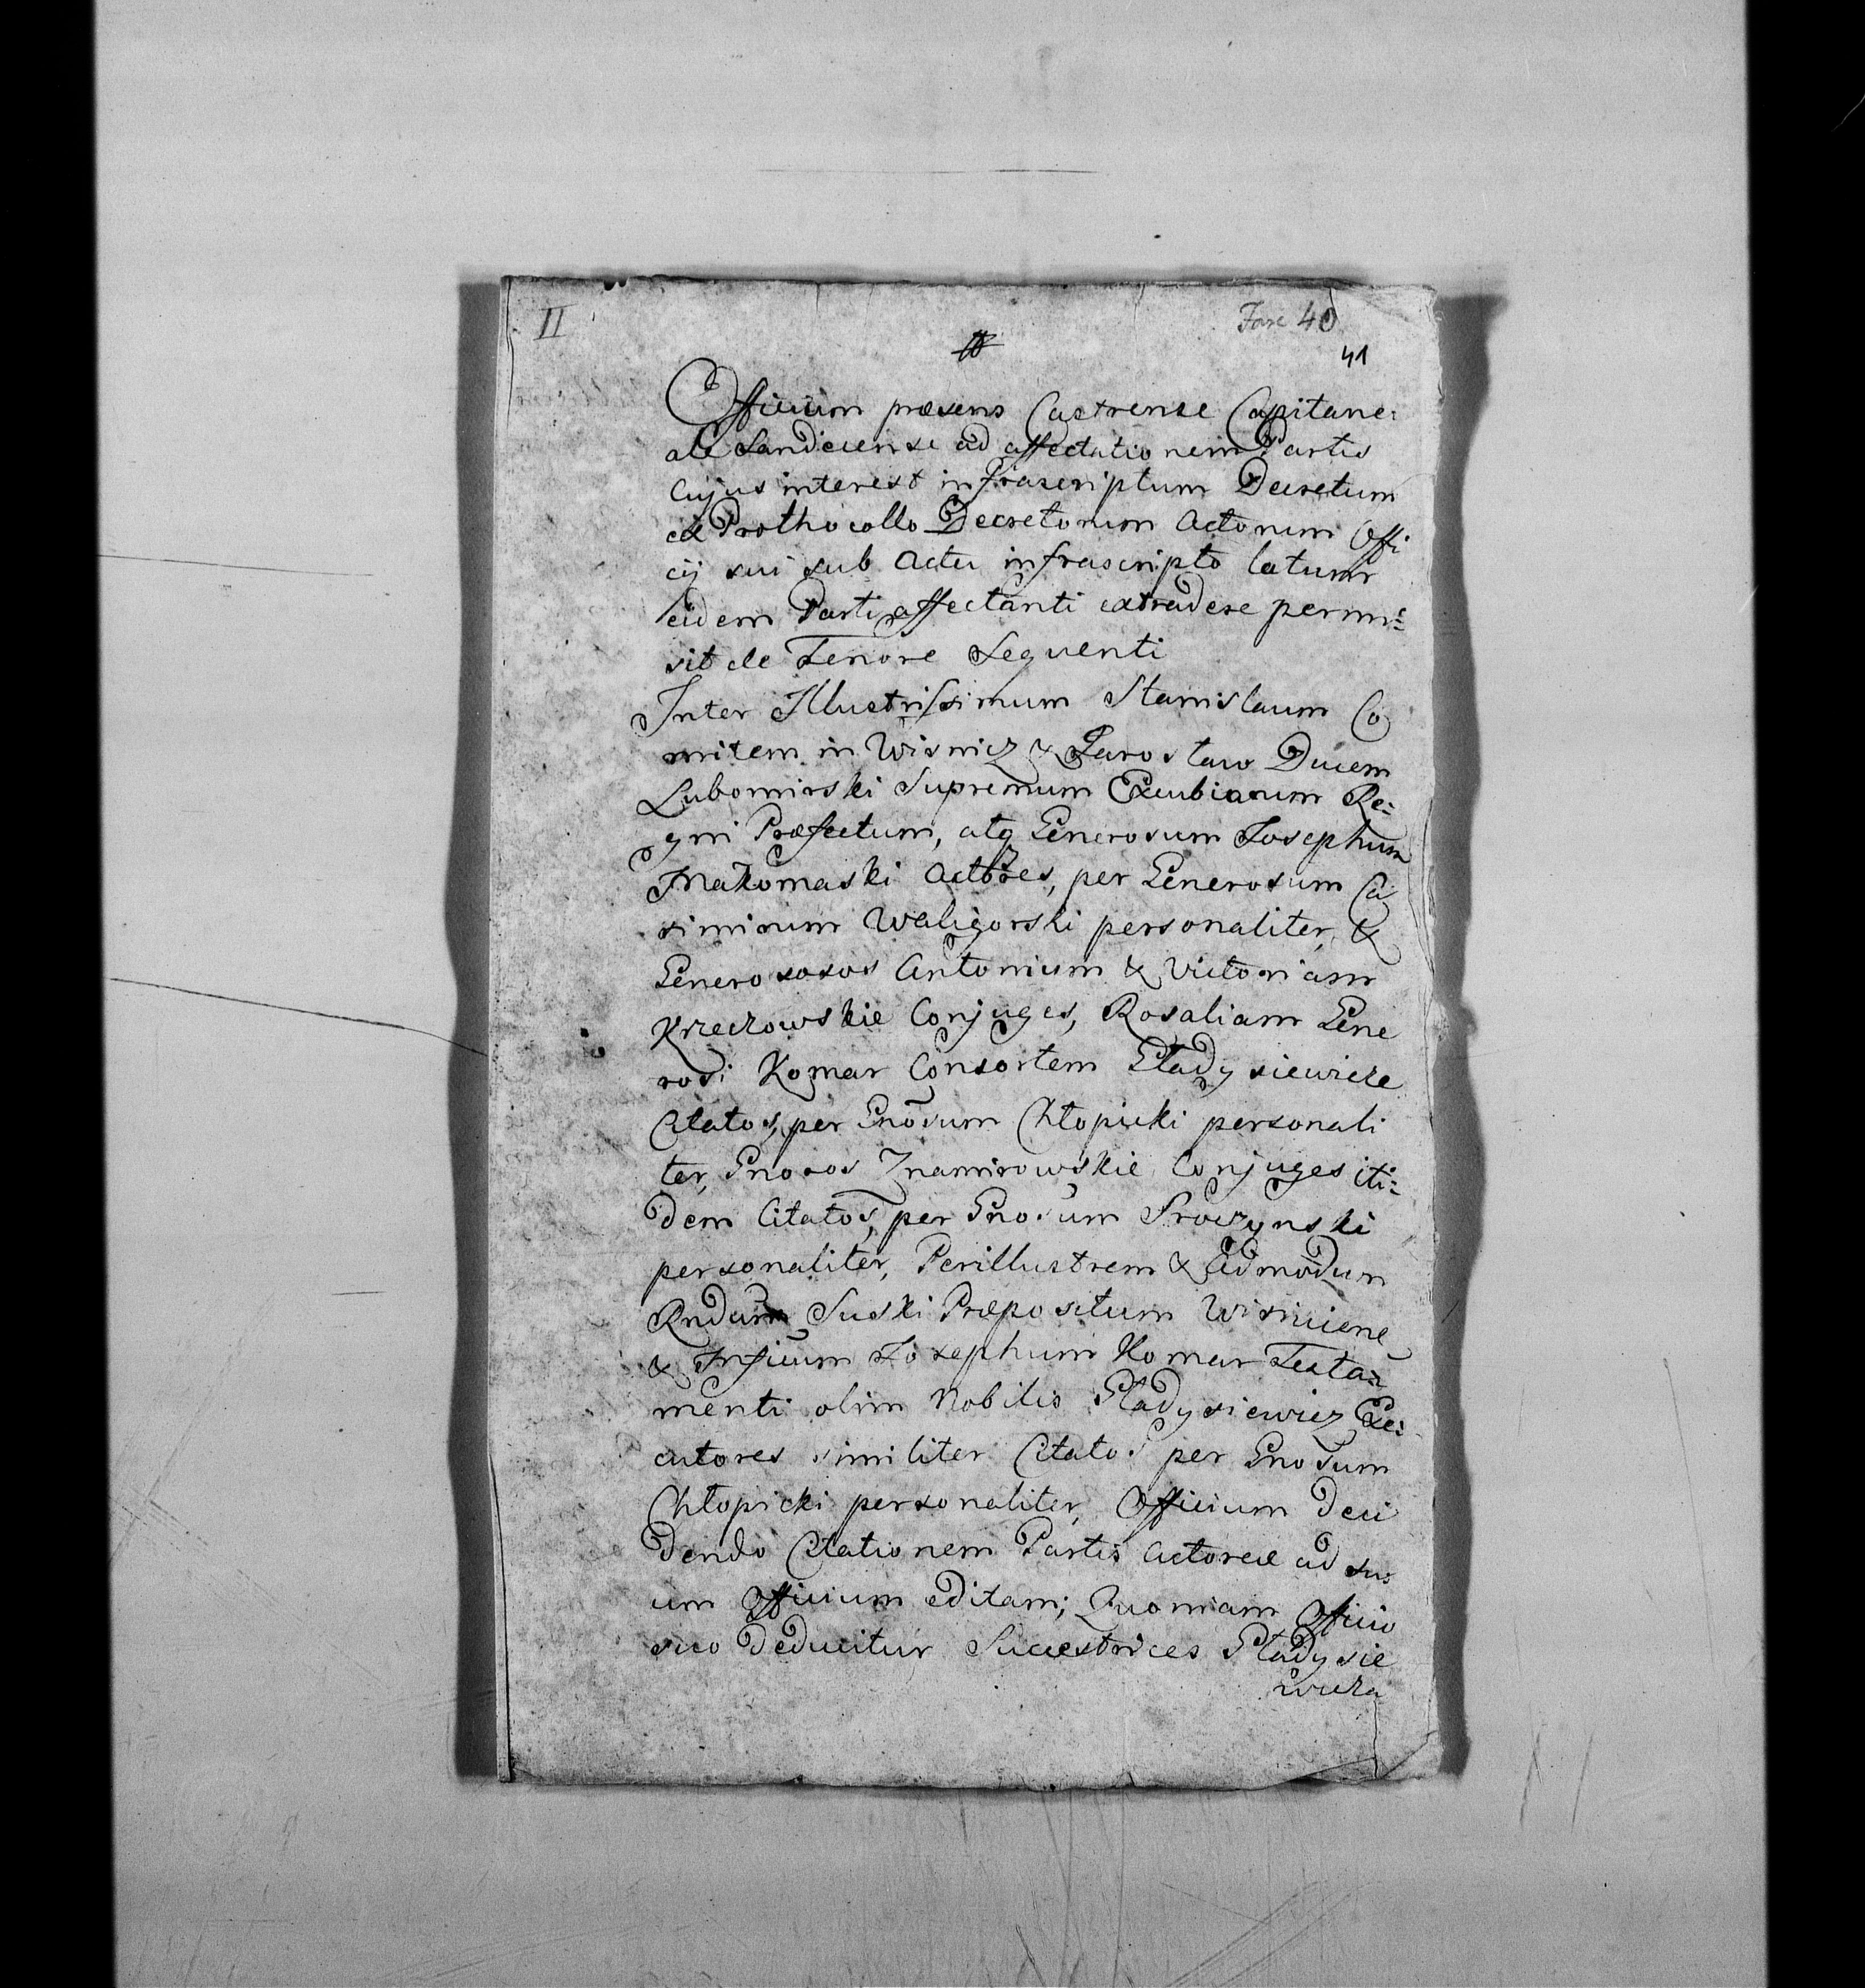 II
Fasc 40
41
Officium præsens Castrense Capitane:
ale Sandecense ad affectationem Partis
Cujus interest infrascriptum Decretum
ex Prothocollo Decretorum Actorum Offi
cij sui sub Actu infrascripto latum
eidem Parti affectanti extradere permi:
sit de Tenore Sequenti
Inter Illustrissimum Stanislaum Co
mitem in Wisnicz & Jarosław Ducem
Lubomirski Supremum Excubiarum Re:
gni Præfectum, atq Generosum Josephum
Makomaski Actores, per Generosum Ca
simirum Waligorski personaliter, &
Generososos Antonium & Victoriam
Krzeczowskie Conjuges, Rosaliam Gene
rosi Komar Consortem Gładysiewicze
Citatos, per Gnosum Chłopicki personali
ter, Gnosos Znamirowskie Conjuges iti:
dem Citatos, per Gnosum Troczynski
personaliter, Perillustrem & Admodum
Rndum Suski Præpositum Wisnicene
& Josephum Komar Testa:
menti olim Nobilis Gładysiewicz Exe:
cutores similiter Citatos per Gnosum
Chłopicki personaliter, Officium deci
dendo Citationem Partis Actoreæ ad su
um Officium editam; Quoniam Officio
suo deducitur Successtrices Gładysie
wicza